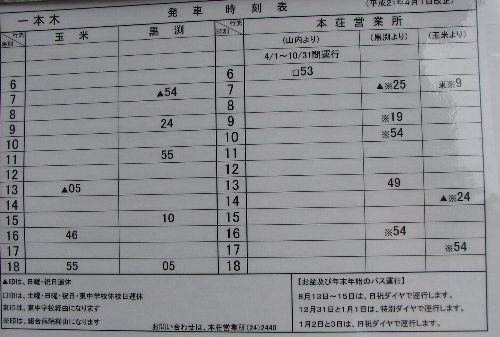 発車時刻表 (平成21年4月1日改正)
一本木 本荘営業所
行先 時刻 玉米 黒渕 行先 時刻 (山内より) (黒渕より) (玉米より)
4/1～10/31間運行
6 6 □53
7 ▲54 7 ▲※25 東※9
8 8
9 24 9 ※19
10 10 ※54
11 55 11
12 12
13 ▲05 13 49
14 14 ▲※24
15 10 15
16 46 16 ※54
17 17 ※54
18 55 05 18
▲印は、日曜・祝日運休
□印は、土曜・日曜・祝日・東中学校休校日運休
東印は、東中学校経由になります
※印は、組合病院経由になります
お問い合わせは、本荘営業所(24)2440
【お盆及び年末年始のバス運行】
8月13日～15日は、日祝ダイヤで運行します。
12月31日と1月1日は、特別ダイヤで運行します。
1月2日と3日は、日祝ダイヤで運行します。